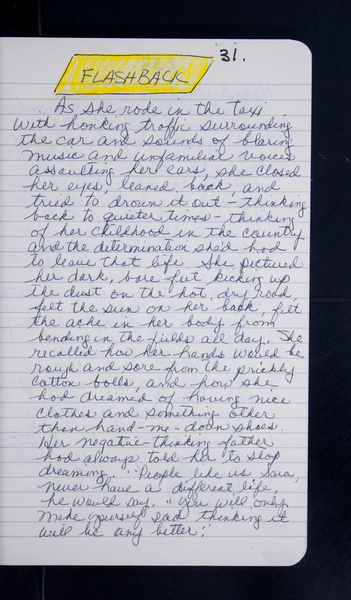 31.
FLASHBACK
As she rode in the taxi
with honking traffic surrounding
the car and sounds of blaring
music and unfamiliar voices
assaulting her ears, she closed
her eyes, leaned back, and
tried to drown it out - thinking
back to quieter times - thinking
of her childhood in the country
and the determination she'd had
to leave that life. She pictured
her dark, bare feet kicking up
the dust on the hot, dry road,
felt the sun on her back, felt
the ache in her body from
bending in the fields all day. She
recalled how her hands would be
rough and sore from the prickly
cotton bolls, and how she
had dreamed of having nice
clothes and something other
than hand-me-down shoes.
Her negative-thinking father
had always told her to stop
dreaming. "People like us, Sara,
never have a different life,
he would say. "You will only
make yourself sad thinking it
will be any better."